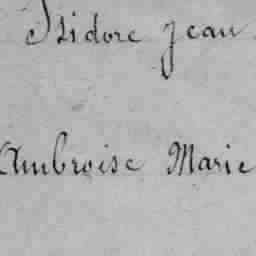 Isidore Jean
Ambroise Marie